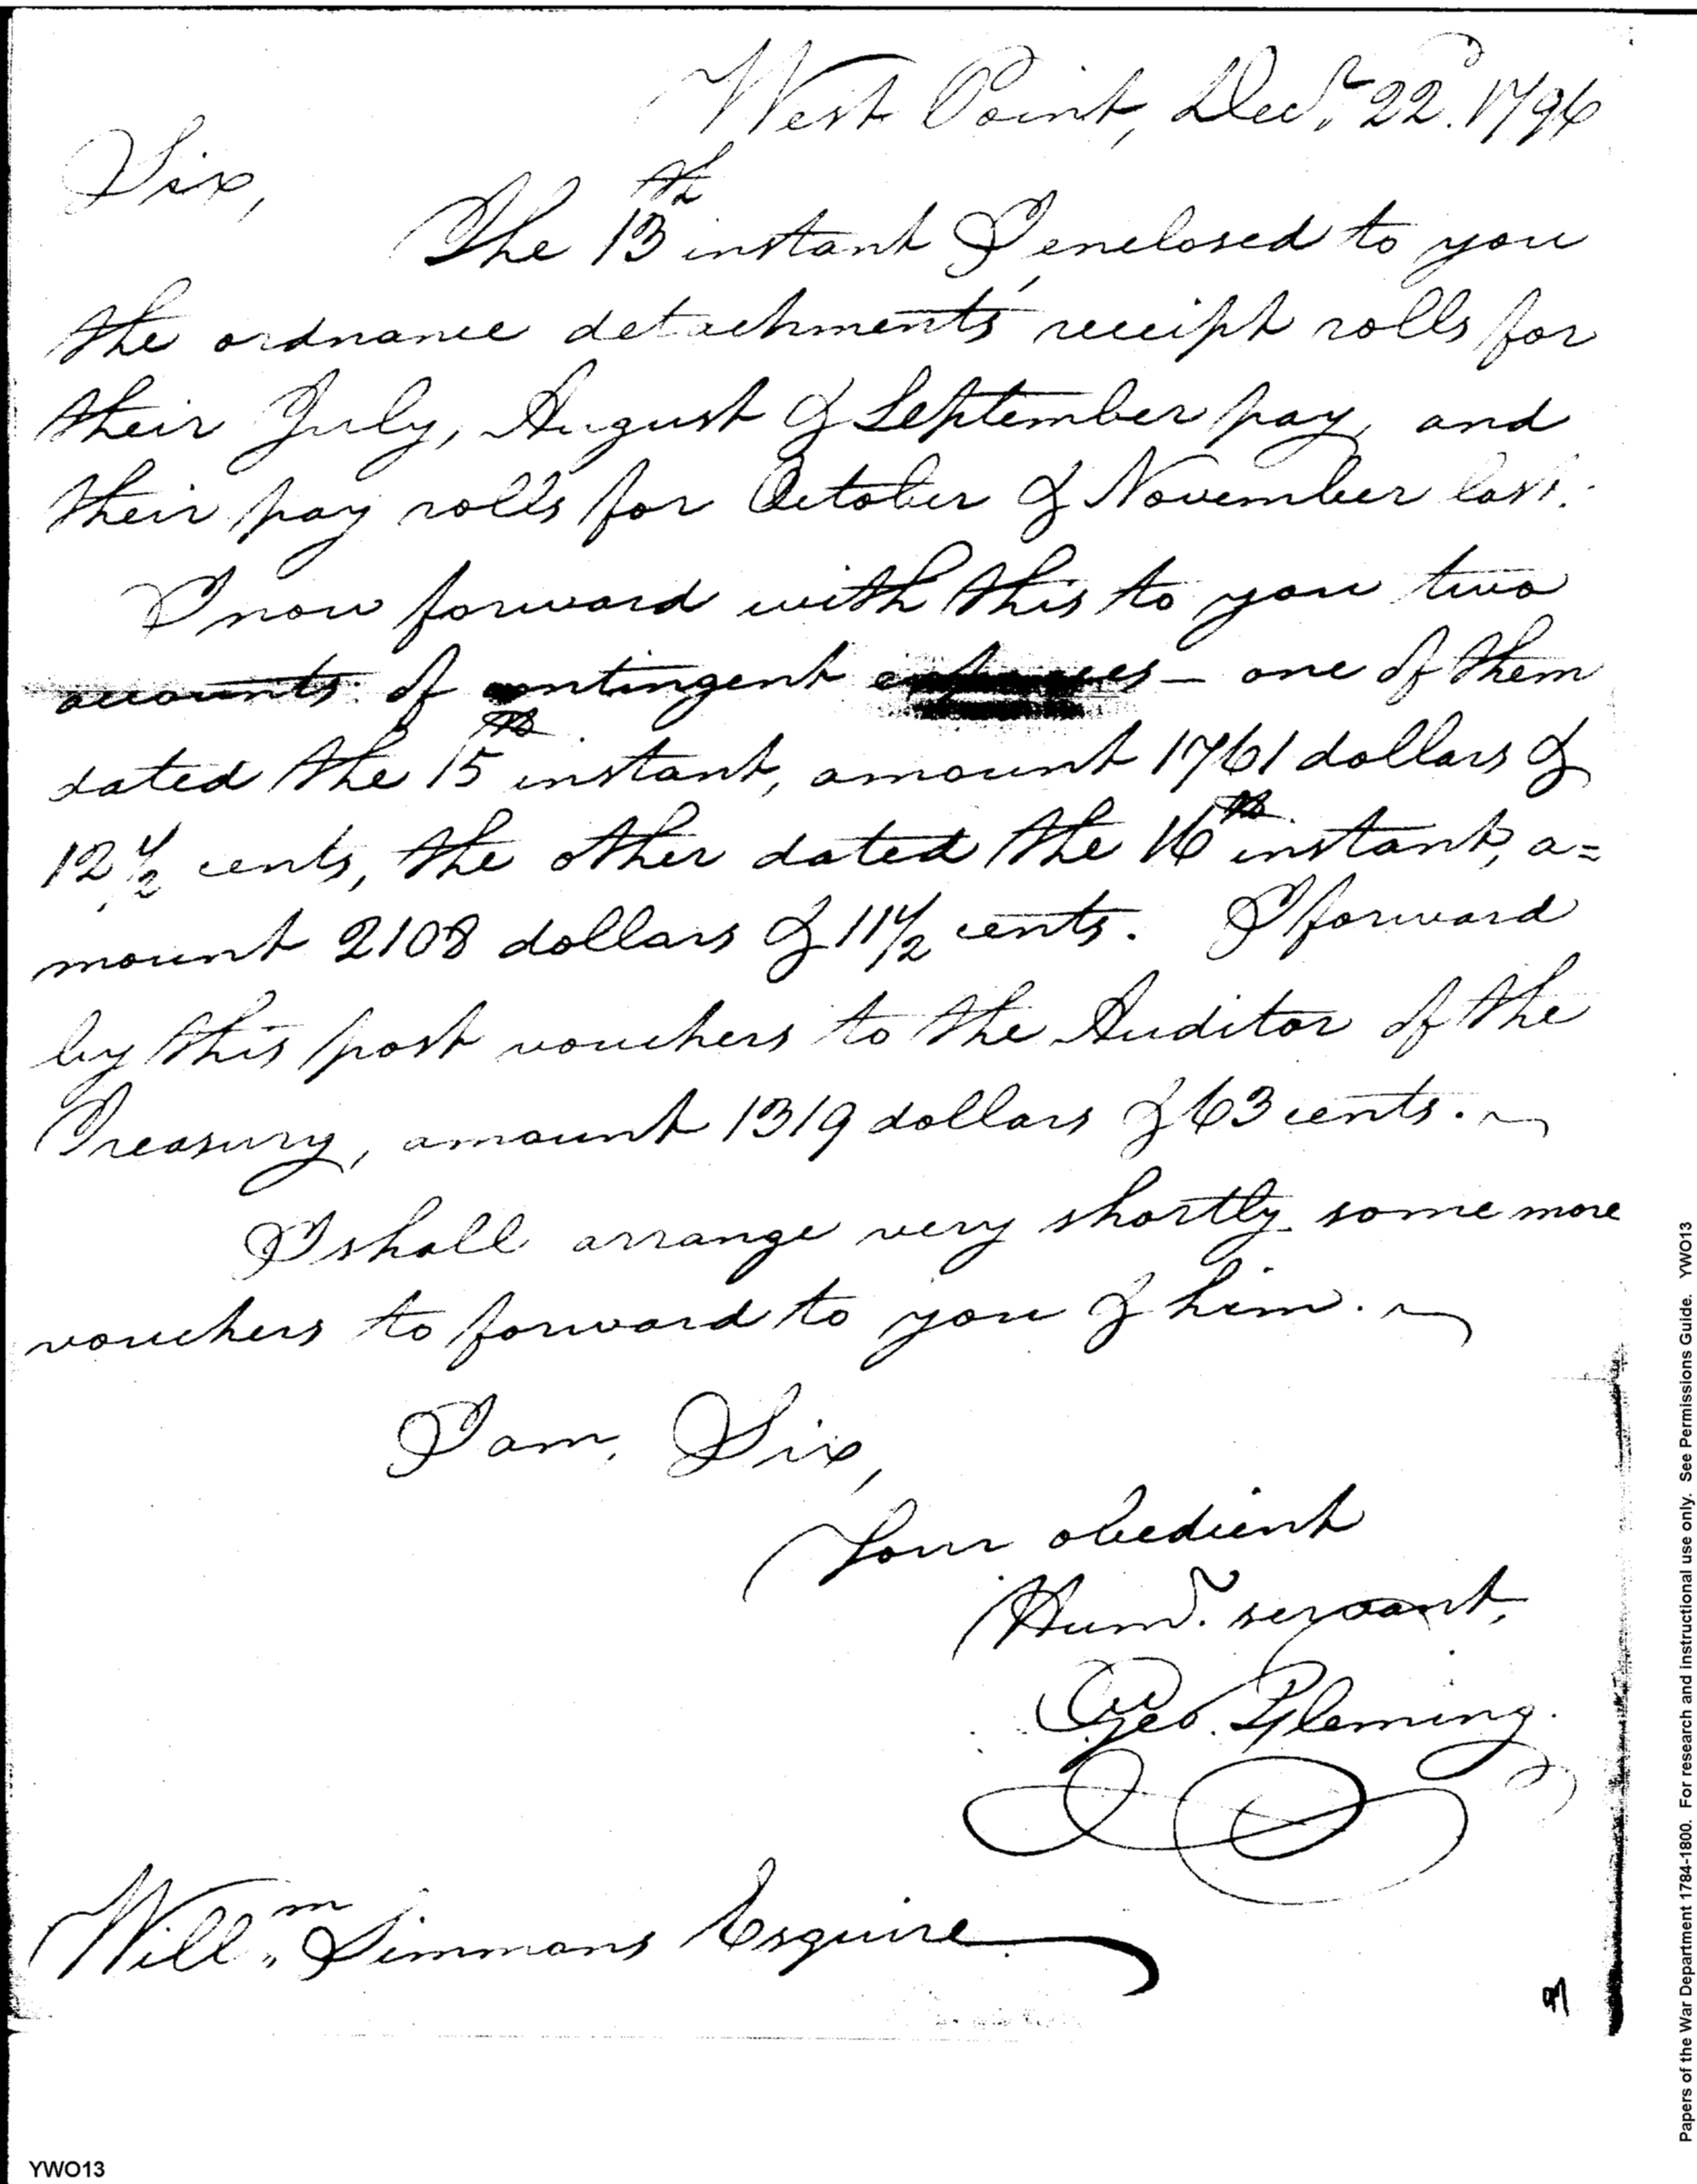 West Point, Decr. 22d. 1796
Sir,
The 13th instant I enclosed to you
the ordnance detachments' receipt rolls for
their July, August & September pay, and
their pay rolls for October & November last.
I now forward with this to you two
accounts of contingent expences — one of them
dated the 15th instant, amount 1761 dollars &
12 1/2 cents, the other dated the 16th instant, a=
mount 2108 dollars & 11 1/2 cents. I forward
by this post vouchers to the Auditor of the
Treasury, amount 1319 dollars & 63 cents.
I shall arrange very shortly some more
vouchers to forward to you & him.
I am, Sir,
Your obedient
Humb. servant,
Geo. Fleming.
Willm. Simmons Esquire
Papers of the War Department 1784-1800. For research and instructional use only. See Permissions Guide. YWO13
YWO13